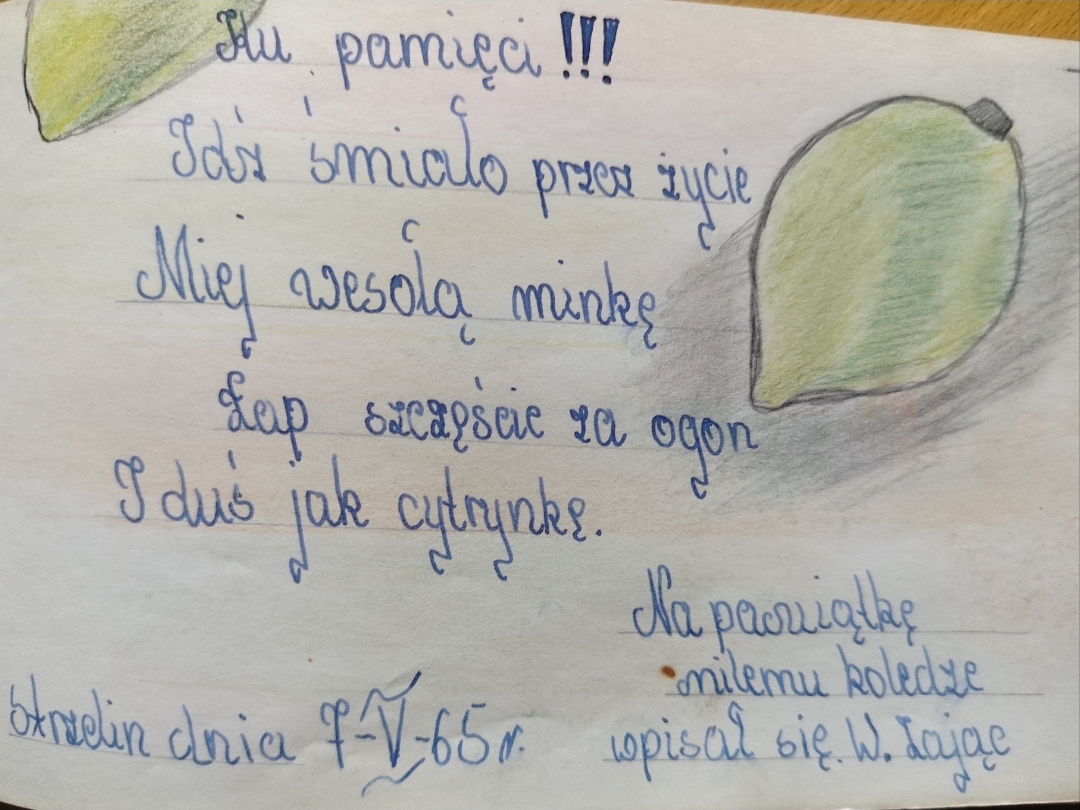 Ku pamięci !!!
Idź śmiało przez życie
Miej wesołą minkę
Łap szczęście za ogon
I duś jak cytrynkę.
Na pamiątkę
miłemu koledze
wpisał się. W. Zając
Strzelin dnia 7-V-65 r.